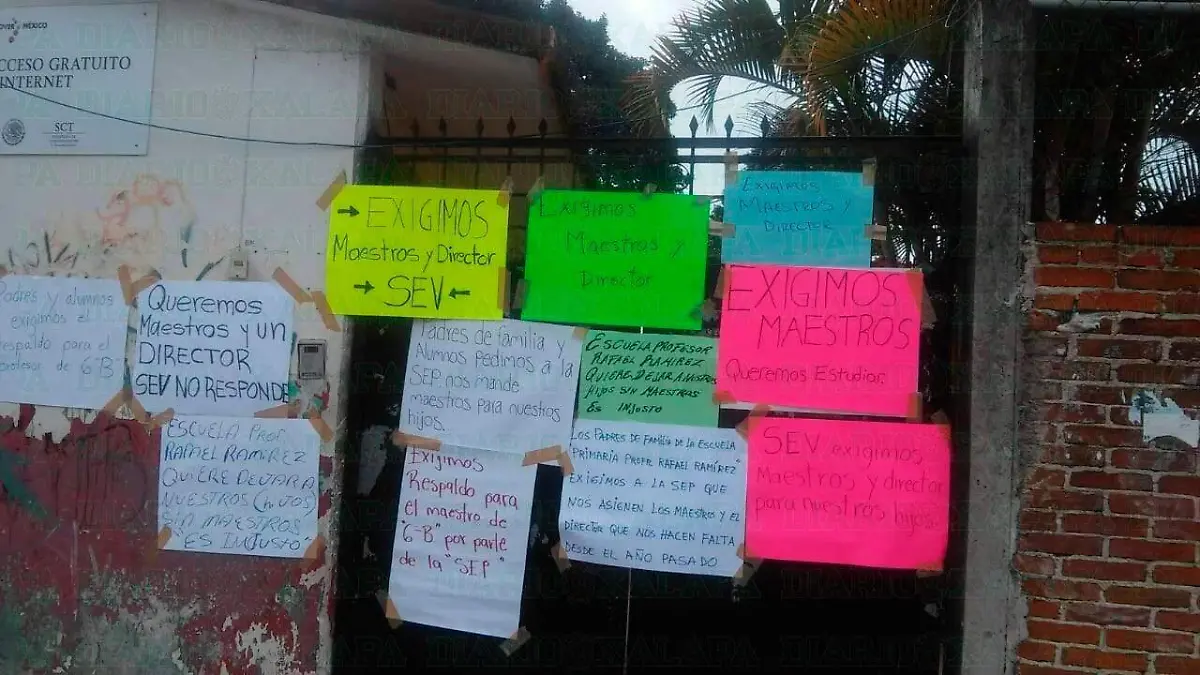 MÉXICO
CCESO GRATUITO
INTERNET
SCT
Padres y alumnos
exigimos el
respaldo para el
profesor de 6°B
Queremos
Maestros y un
DIRECTOR
SEV NO RESPONDE
ESCUELA PROF.
RAFAEL RAMIREZ
QUIERE DEJAR A
NUESTROS (HIJOS)
SIN MAESTROS
"ES INJUSTO"
EXIGIMOS
Maestros y Director
SEV
Exigimos
Maestros y
Director
EXIGIMOS
MAESTROS Y
DIRECTOR
EXIGIMOS
MAESTROS
Queremos Estudiar.
Padres de familia y
Alumnos pedimos a la
SEP nos mande
maestros para nuestros
hijos.
ESCUELA PROFESOR
RAFAEL RAMIREZ
QUIERE DEJAR A NUSTROS
HIJOS SIN MAESTROS
ES INJUSTO
Exigimos
Respaldo para
el maestro de
"6-B" por parte
de la "SEP"
LOS PADRES DE FAMILIA DE LA ESCUELA
PRIMARIA PROFR RAFAEL RAMÍREZ"
EXIGIMOS A LA SEP QUE
NOS ASIENEN LOS MAESTROS Y EL
DIRECTOR QUE NOS HACEN FALTA
DESDE EL AÑO PASADO
SEV exigimos
Maestros y director
para nuestros hijos.
DIARIO XALAPA